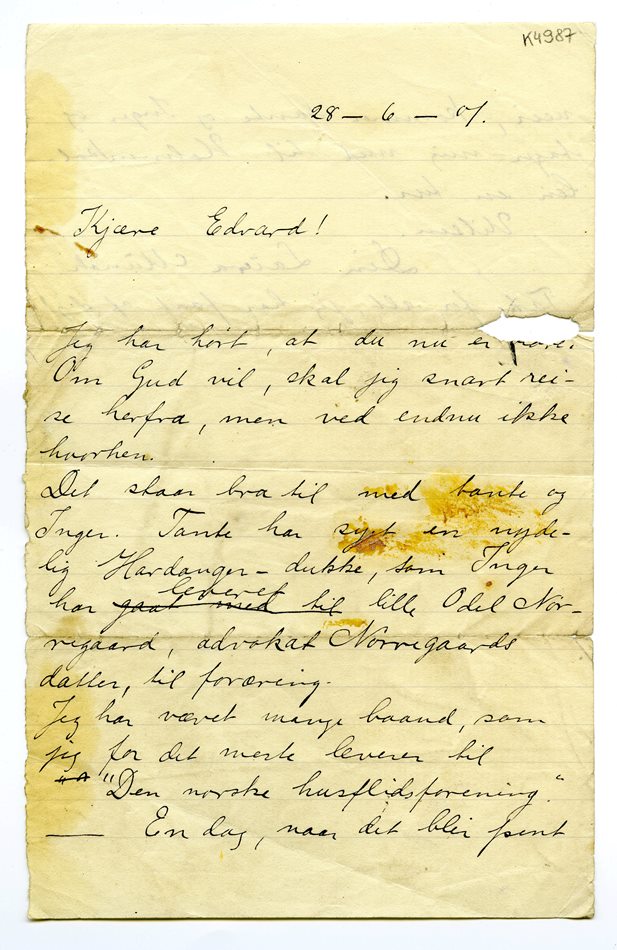 K4987
28 — 6 — 01.
Kjære Edvard!
Jeg har hørt, at du nu er
Om Gud vil, skal jeg snart rei-
se herfra, men ved endnu ikke
hvorhen.
Det staar bra til med tante og
Inger. Tante har sygt en nyde-
lig Hardanger-dukke, som Inger
leveret
har gaat med til lille Odel Nor-
regaard, advokat Nørregaards
datter, til foræring.
Jeg har vævet mange baand, som
jeg for det meste leverer til
"Den norske husflidsforening."
— En dag, naar det blir pent